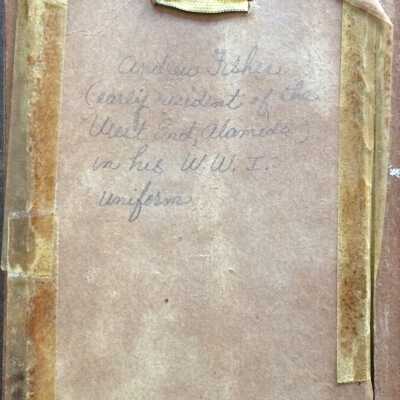 Andrew Fisher
(early resident of the
West End, Alameda)
in his W.W. I.
uniform